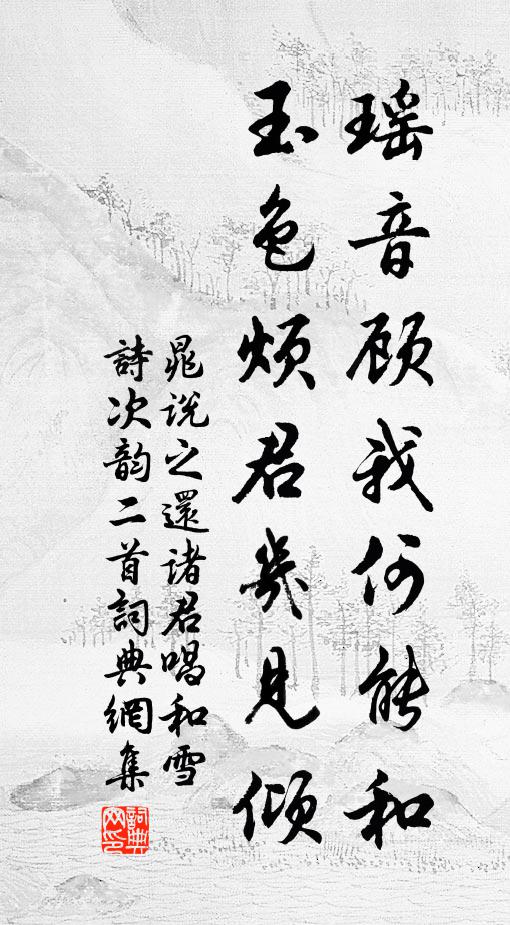 瑶音顾我何能和
玉色烦君几見倾
晁说之還诸君唱和雪
詩次韵二首詞典網集
詞典网印